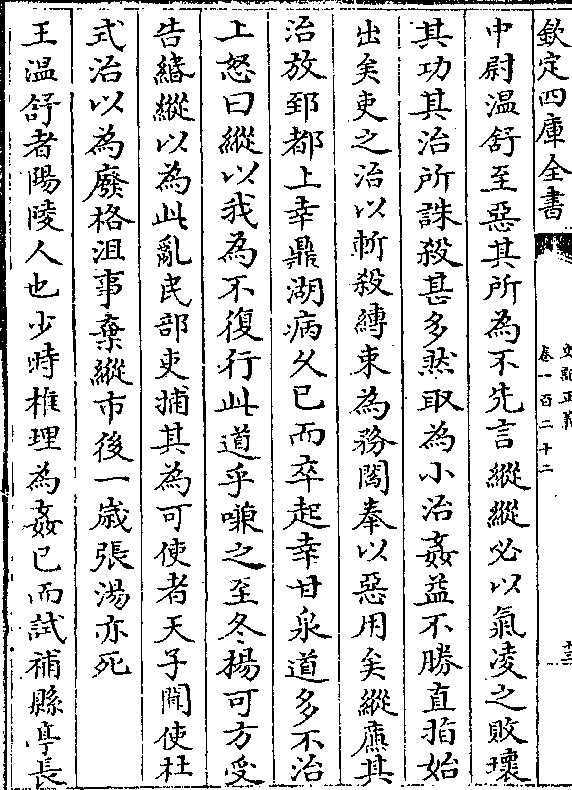 欽定四庫全書
史記正義
卷一百二十二
十三
中尉溫舒至惡其所為不先言縱縱必以氣淩之敗壞
其功其治所誅殺甚多然取為小治姦益不勝直指始
出矣吏之治以斬殺縛束為務閻奉以惡用矣縱廉其
治放郅都上幸鼎湖病久已而卒起幸甘泉道多不治
上怒曰縱以我為不復行此道乎嗛之至冬楊可方受
告緡縱以為此亂民部吏捕其為可使者天子聞使杜
式治以為廢格沮事棄縱市後一歳張湯亦死
王溫舒者陽陵人也少時椎理為姦已而試補縣亭長